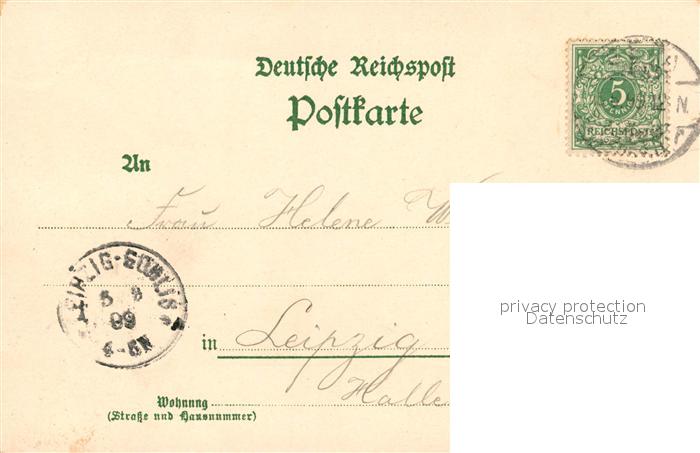 Deutsche Reichspost
Postkarte
5
PFENNIG
REICHSPOST
N
An
Frau Helene W
LEIPZIG-GOHLIS
5 8
99
4-5N
in Leipzig
Halle
Wohnung
(Straße und Hausnummer)
privacy protection
Datenschutz